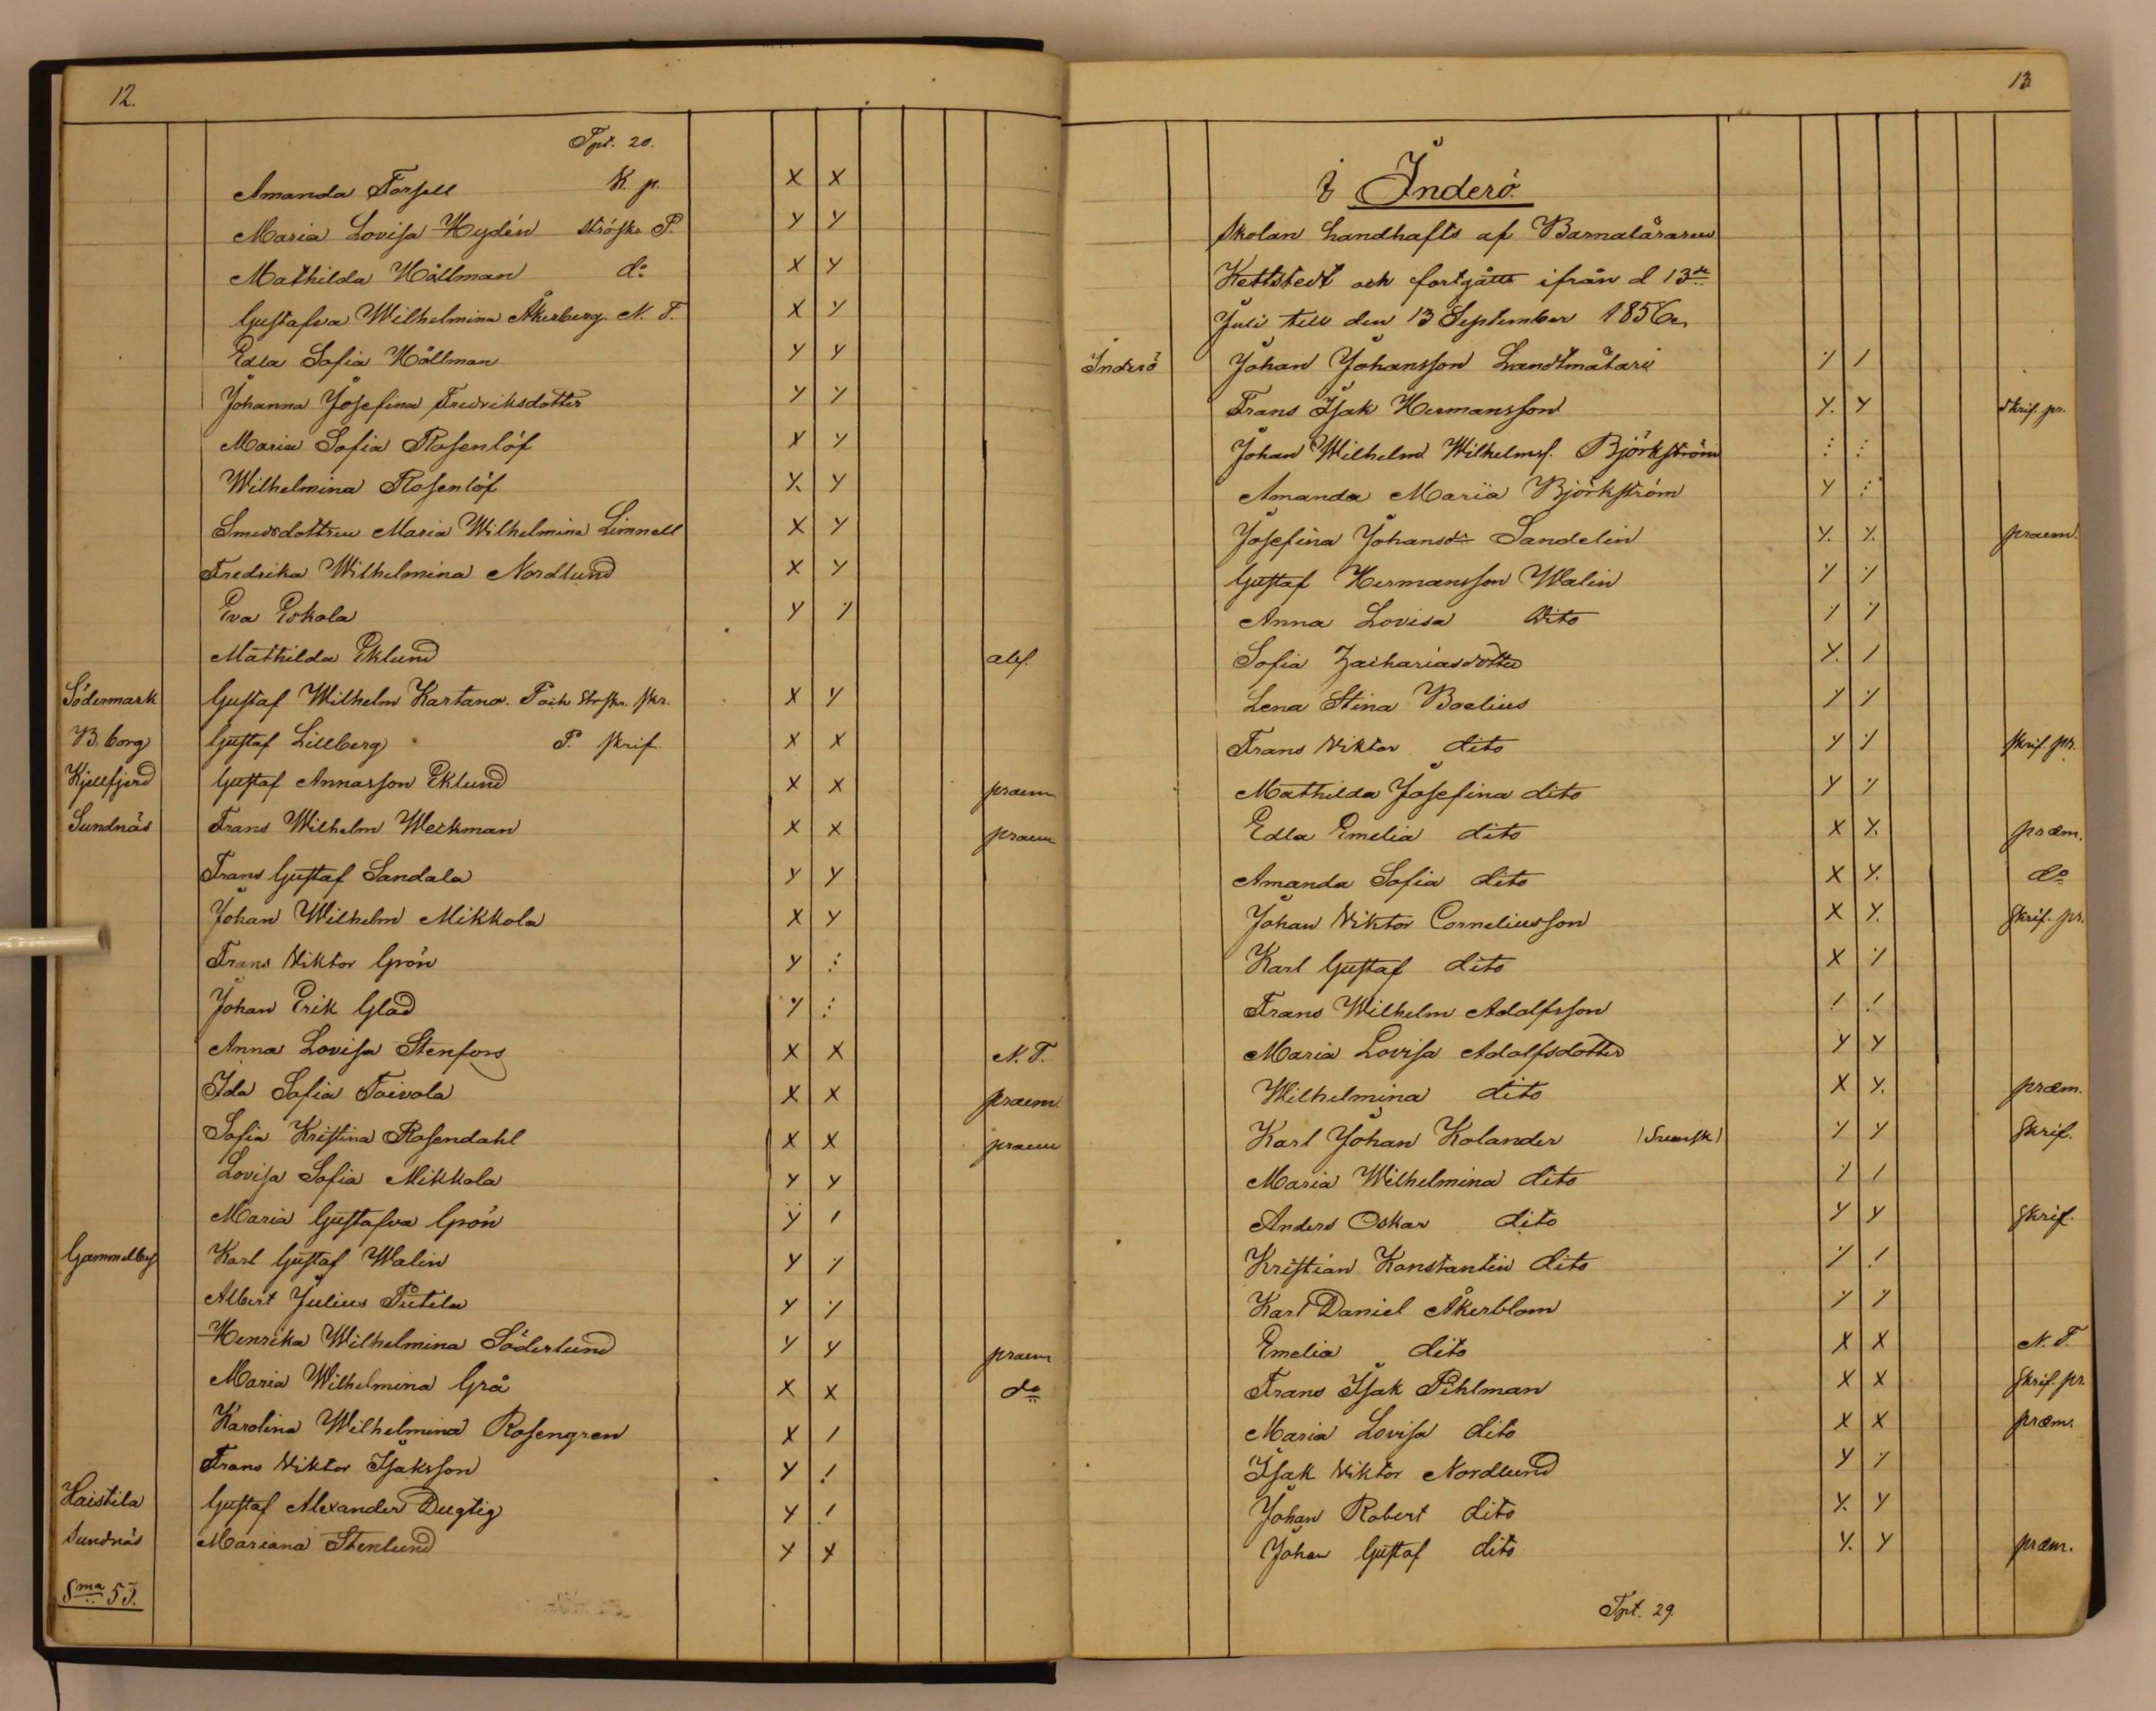 12.
Tpt. 20.
Amanda Forsell K. p. X X
Maria Lovisa Hydén ströskr. P. Y Y
Mathilda Hällman do X Y
Gustafva Wilhelmina Åkerberg N. T. X Y
Edla Sofia Hällman Y Y
Johanna Josefina Fredriksdotter Y Y
Maria Sofia Rosenlöf Y Y
Wilhelmina Rosenlöf Y. Y
Smedsdottren Maria Wilhelmina Limnell X Y
Fredrika Wilhelmina Nordlund X Y
Eva Eskola Y ٪
Mathilda Eklund abs.
Södermark Gustaf Wilhelm Kartano. P och strskr. skr. X Y
B. borg Gustaf Lillberg P. skrif X X
Kjellfjerd Gustaf Annasson Eklund X X praem
Sundnäs Frans Wilhelm Weckman X X praem
Frans Gustaf Sandala Y Y
Johan Wilhelm Mikkola X Y
Frans Viktor Grön Y ⫶
Johan Erik Glad ٪ ⫶
Anna Lovisa Stenfors X X N. T.
Ida Sofia Toivola X X praem.
Sofia Kristina Rosendahl X X praem
Lovisa Sofia Mikkola Y Y
Maria Gustafva Grön Y /
Gammelby Karl Gustaf Walin Y ٪
Albert Julius Putila Y ٪
Henrika Wilhelmina Söderlund Y Y praem
Maria Wilhelmina Grå X X do
Karolina Wilhelmina Rosengren X /
Frans Viktor Isaksson Y /.
Haistila Gustaf Alexander Dugtig Y /.
Sundnäs Mariana Stenlund Y Y
Sma 53.
13
i Inderö.
Skolan handhafts af Barnaläraren
Kettstedt och fortgått ifrån d 13de
Juli till den 13 September 1856.
Inderö Johan Johansson Landtmätari ٪ /
Frans Isak Hermansson Y. Y skrif. pr.
Johan Wilhelm Wilhelmss. Björkström ⫶ ⫶
Amanda Maria Björkström Y ⫶
Josefina Johansdr Sandelin Y. Y. praem.
Gustaf Hermansson Walin ٪ ٪
Anna Lovisa Dito ٪ ٪
Sofia Zachariasdotter Y. /
Lena Stina Boelius Y ٪
Frans Viktor dito Y ٪ skrif. pr.
Mathilda Josefina dito Y ٪
Edla Emelia dito X Y. præm.
Amanda Sofia dito X Y. do
Johan Viktor Corneliusson X Y. skrif. pr.
Karl Gustaf dito X ٪
Frans Wilhelm Adolfsson / /.
Maria Lovisa Adolfsdotter Y Y
Wilhelmina dito X Y. præm.
Karl Johan Kolander (Svensk) ٪ Y skrif.
Maria Wilhelmina dito ٪ /
Anders Oskar dito Y Y skrif.
Kristian Konstantin dito ٪ /.
Karl Daniel Åkerblom ٪ ٪
Emelia dito X X N. T.
Frans Isak Pihlman X X skrif. pr.
Maria Lovisa dito X X præm.
Isak Viktor Nordlund Y ٪
Johan Robert dito Y. Y
Johan Gustaf dito Y. Y præm.
Tpt. 29.